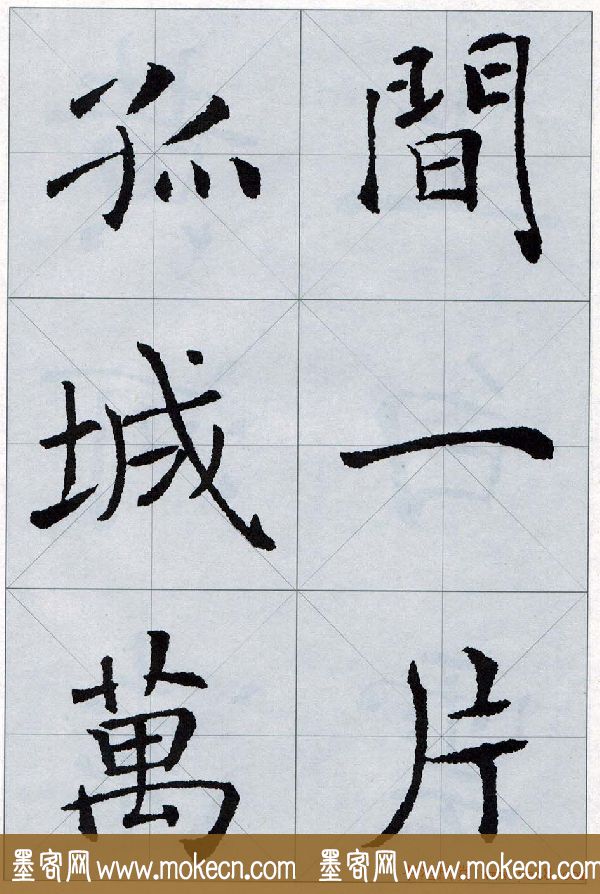 間一片
孤城萬
墨客网 www.mokecn.com 墨客网 www.mokecn.com